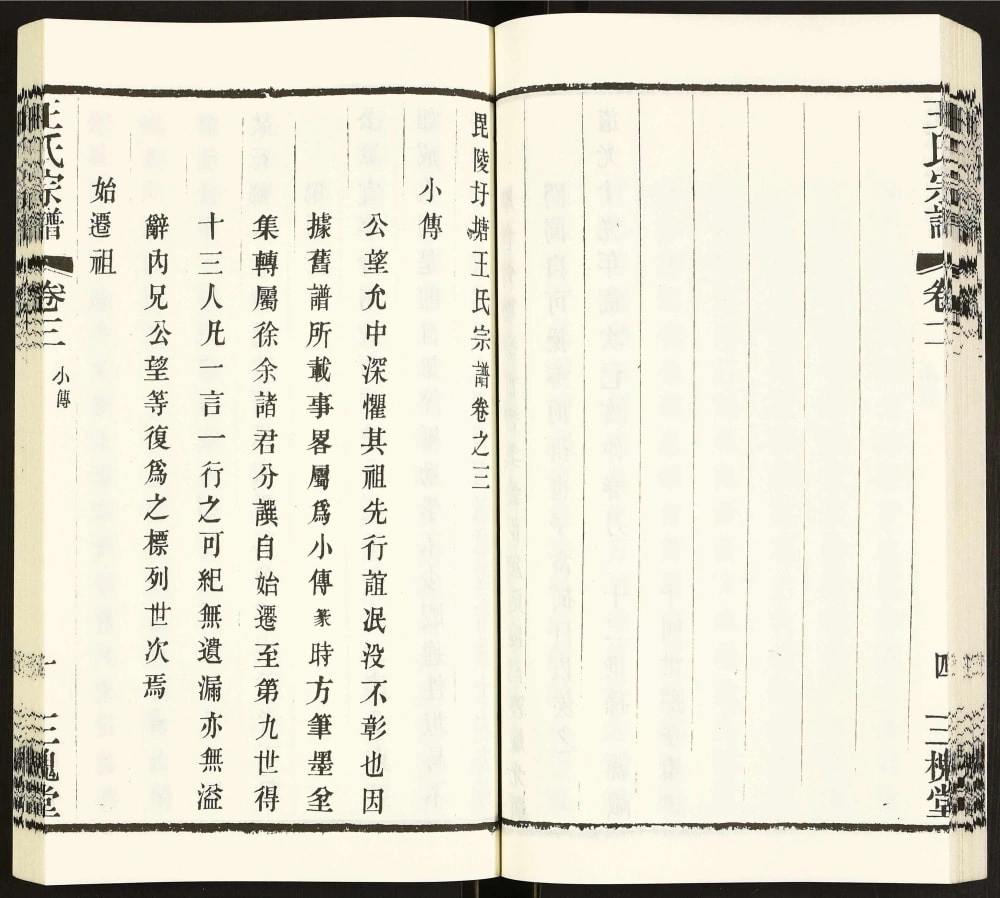 王氏宗譜
四
三槐堂
毘陵圩塘王氏宗譜卷之三
小傳
公望允中深懼其祖先行誼泯没不彰也因
據舊譜所載事畧屬爲小傳篆時方筆墨坌
集轉屬徐余諸君分譔自始遷至第九世得
十三人凡一言一行之可紀無遺漏亦無溢
辭内兄公望等復爲之標列世次焉
始遷祖
王氏宗譜
卷三
小傳
一
三槐堂